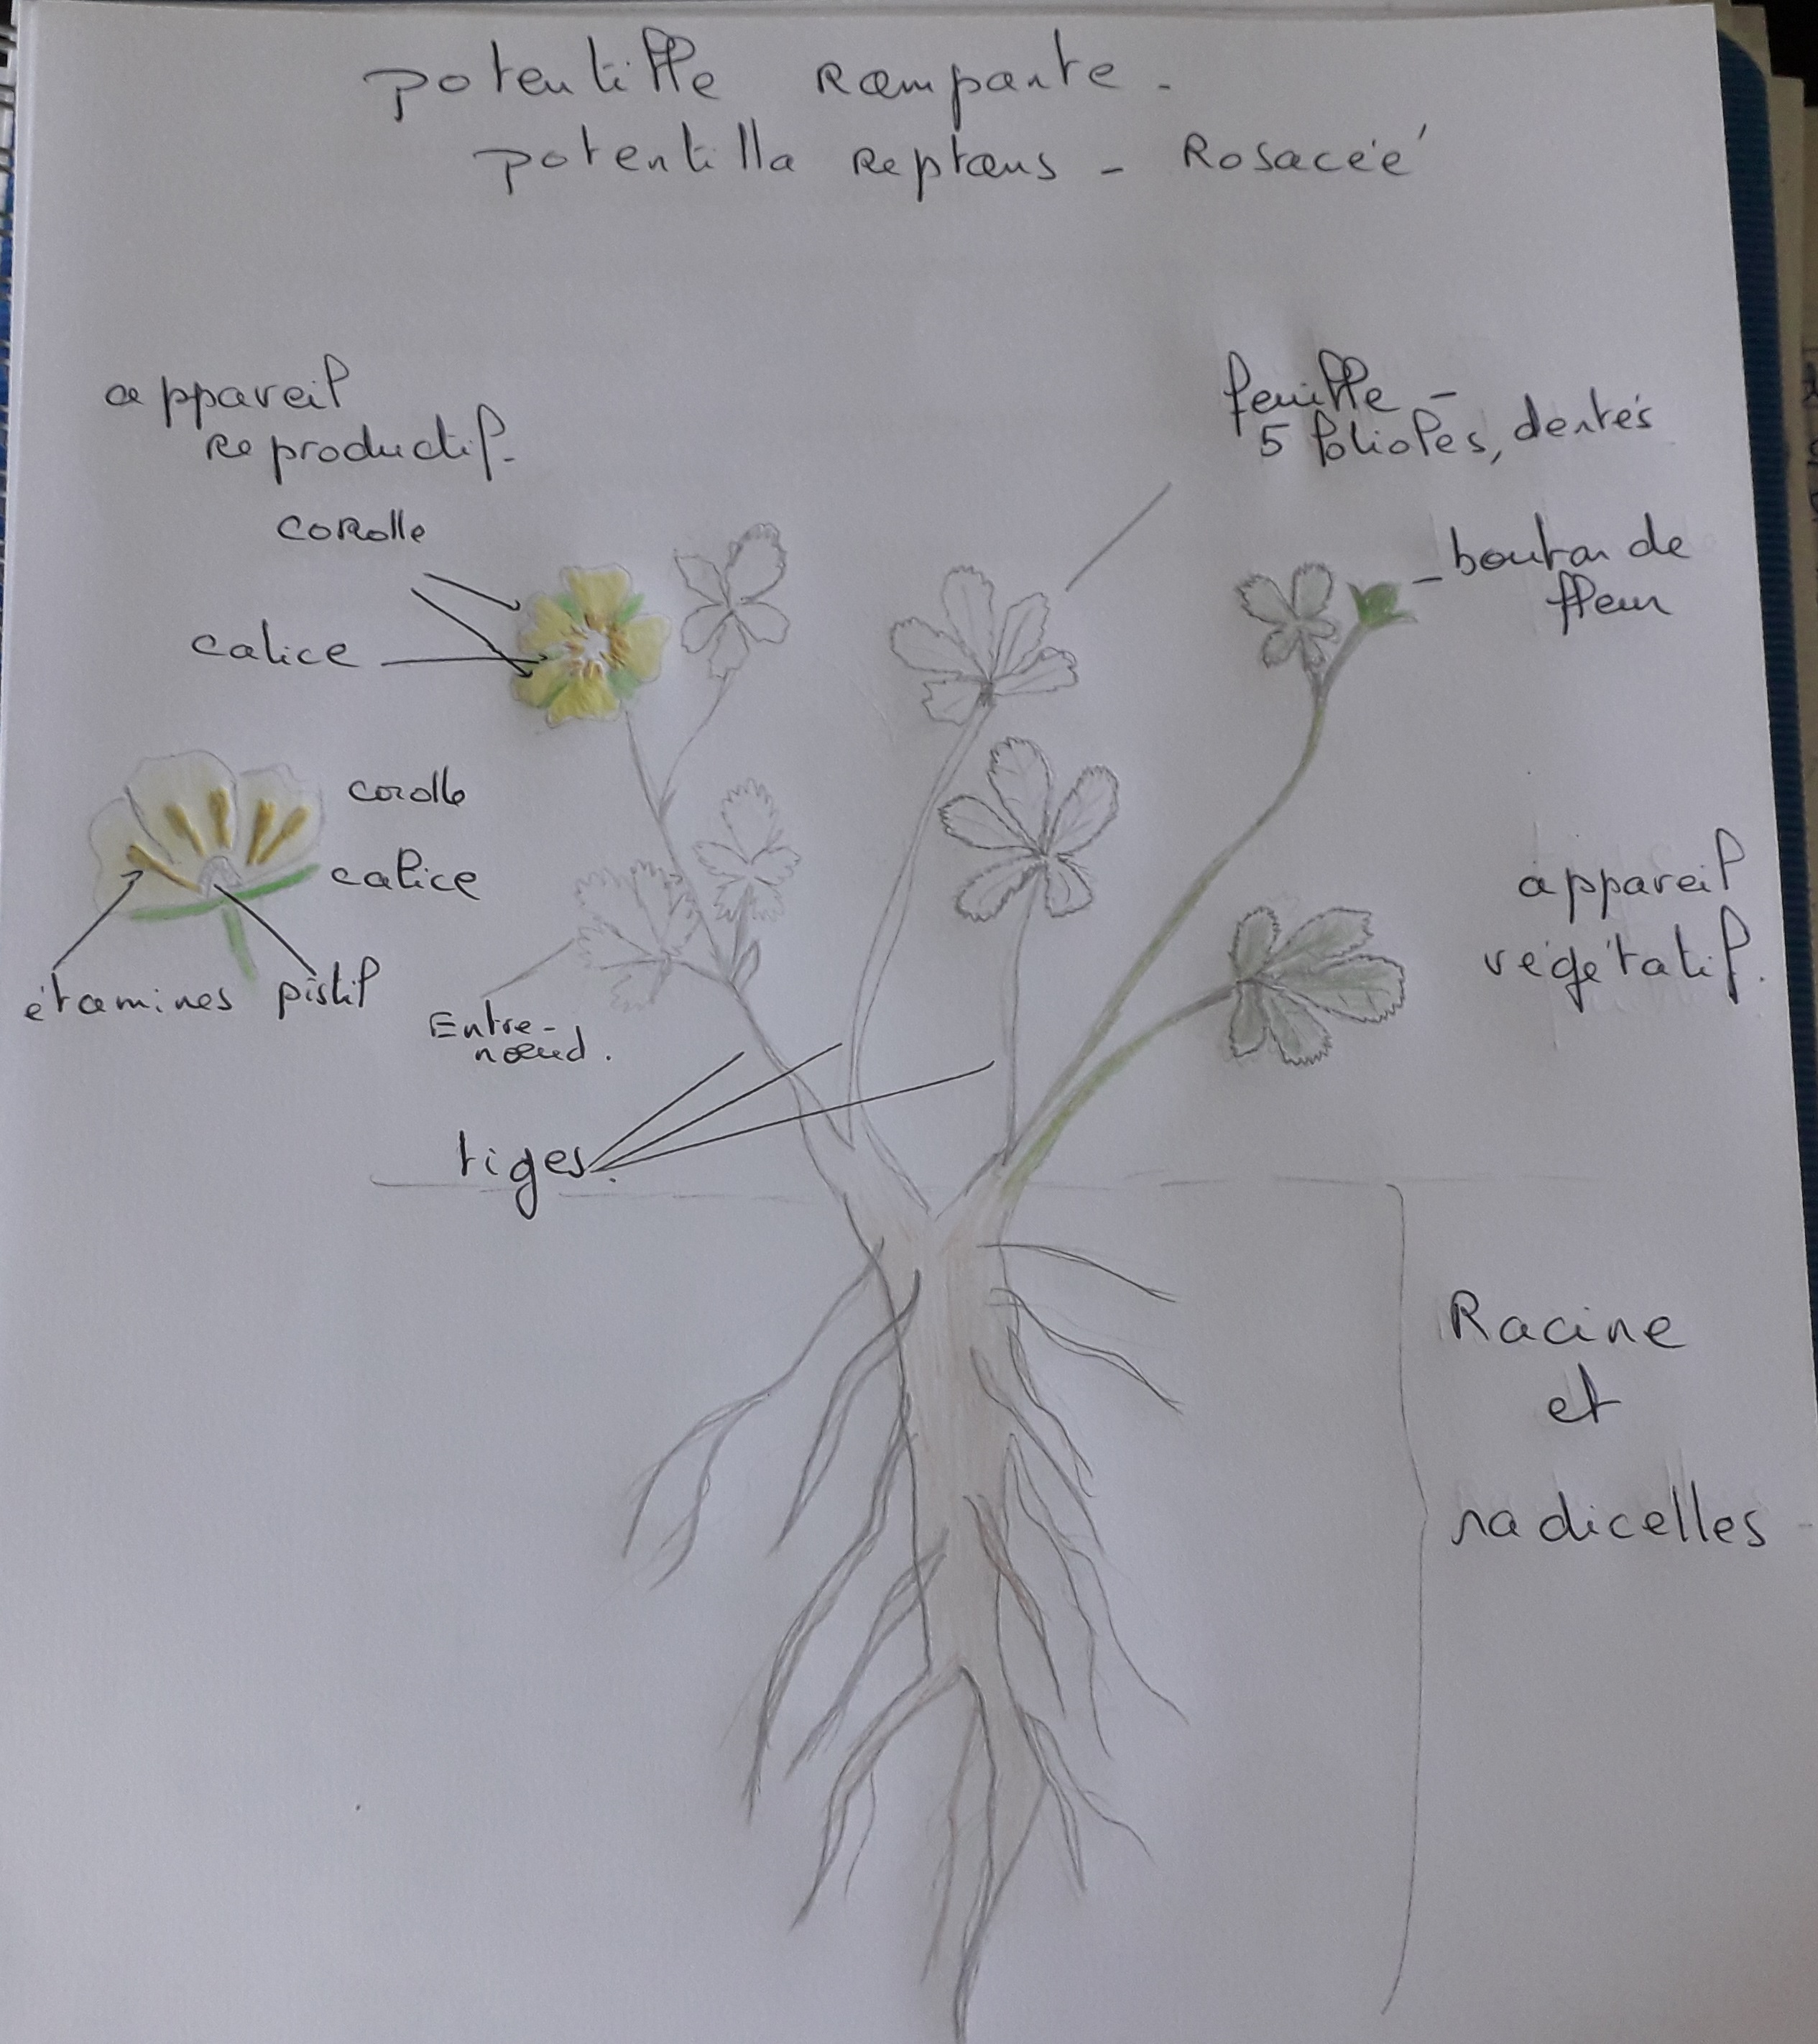 potentille Rampante -
potentilla Reptans - Rosacéé
appareil
Reproductif.
corolle
calice
corolle
calice
étamines
pistil
Entre-
nœud.
tiges.
feuille -
5 folioles, dentés
bouton de
fleur
appareil
végétatif.
Racine
et
radicelles